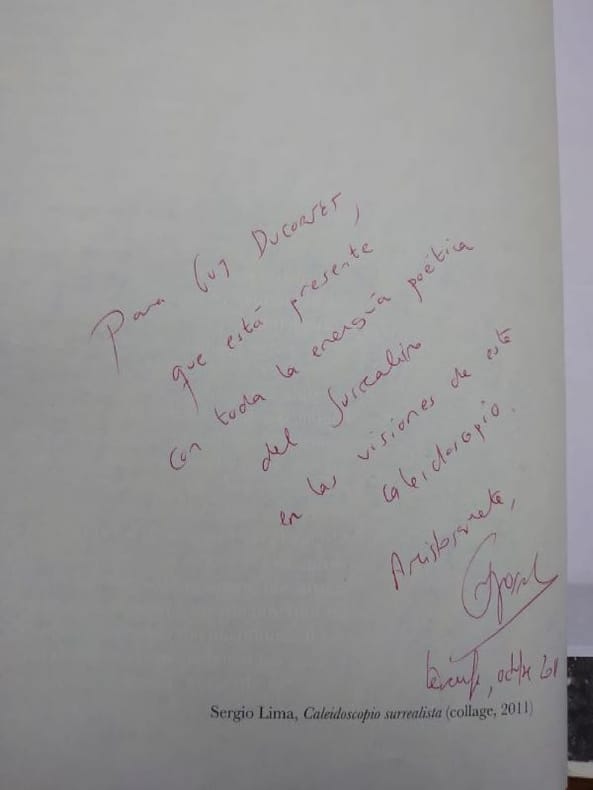 Para Guy Ducornet,
que está presente
con toda la energía poética
del Surrealismo
en las visiones de este
caleidoscopio.
Amistosamente,
Tenerife, octubre 2011
Sergio Lima, Caleidoscopio surrealista (collage, 2011)